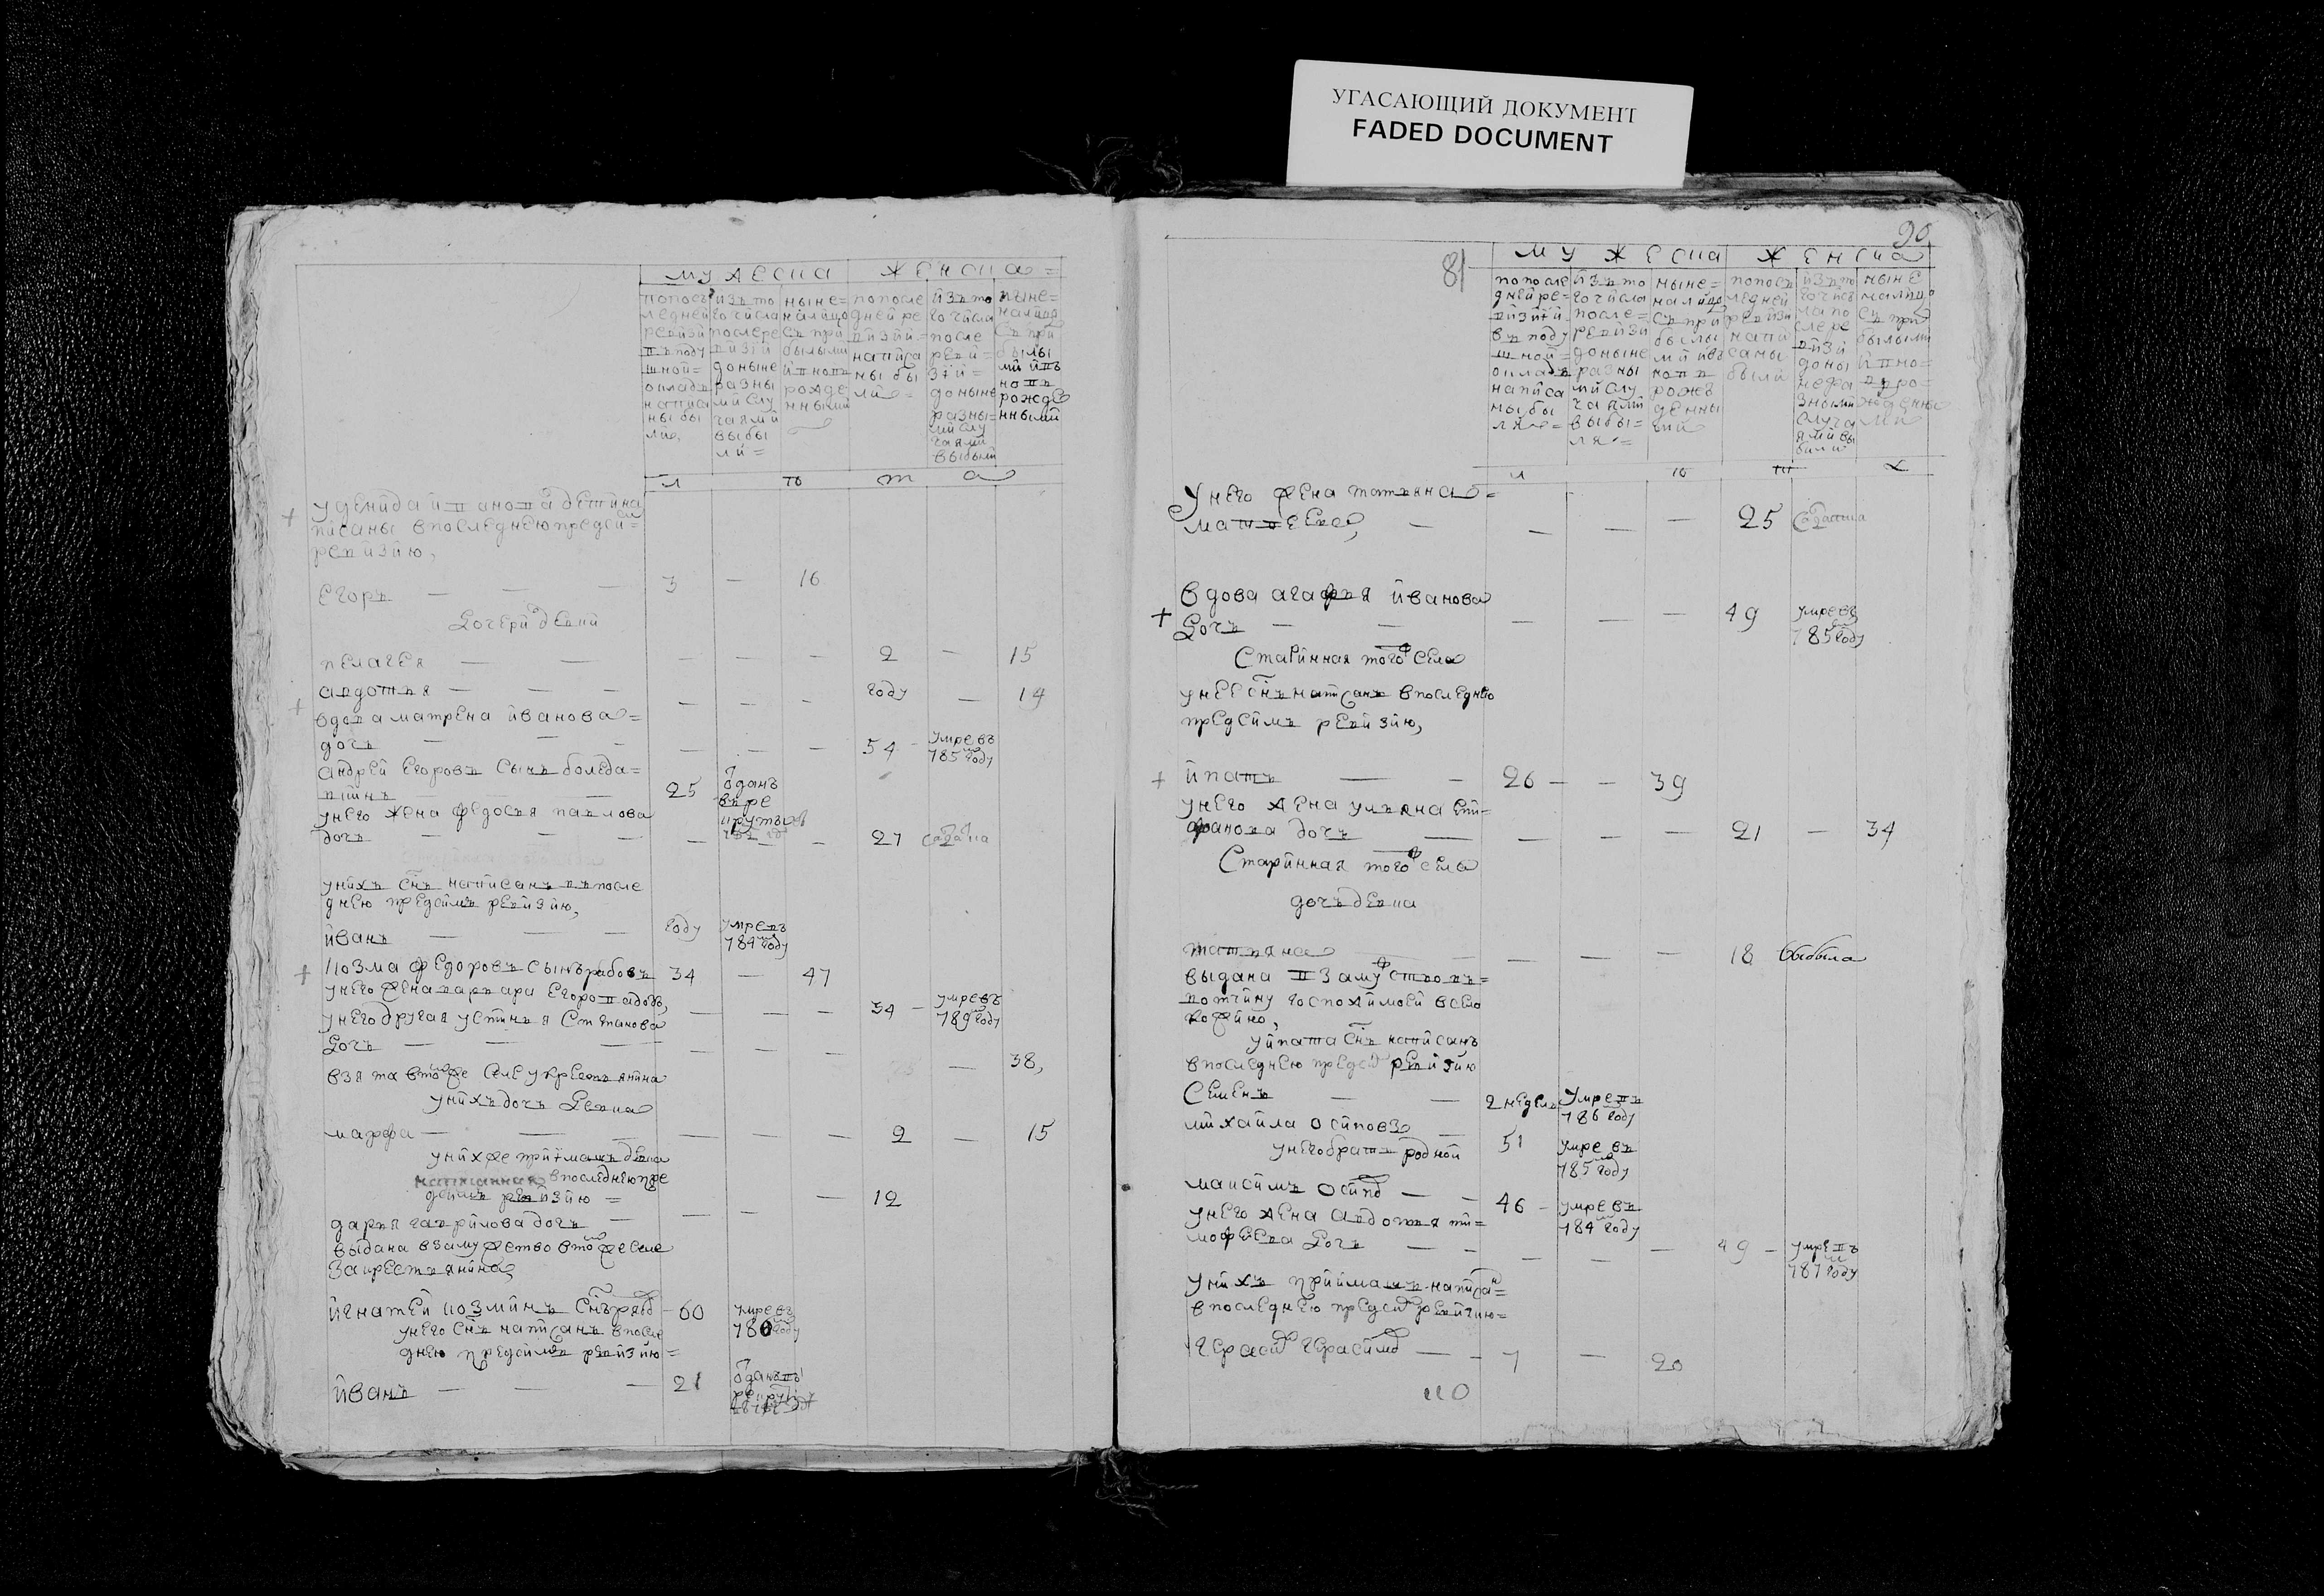 УГАСАЮЩИЙ ДОКУМЕНТ
FADED DOCUMENT
мужеска
женска
по после
ледней
ревизи
въ поду
шной
окладъ
написа
ны бы
ли
изъ то
го числа
после ре
визіи
до ныне
разны
ми слу
чаями
выбы
ли
ныне
налицо
съ при
былыми
и вновь
рожде
нными
по после
дней ре
визіи
написа
ны бы
ли
изъ то
го числа
после
реви
зіи
до ныне
разны
ми слу
чаями
выбыли
ныне
налицо
съ при
былы
ми и въ
новь
рожде
нными
л ѣ т а
у демида иванова дети на
писаны в последнею пред сей
ревизию,
егоръ 3 — 16
дочери девки
пелагея — — — 2 — 15
авдотья — — — году — 14
вдова матрена иванова
дочь — — — 54 умре въ
785 году
андрей егоровъ сынъ
25 отданъ
въ ре
круты
у него жена федосья павлова
дочь — — — 27
у нихъ снъ написанъ въ после
днею пред симъ ревизию,
иванъ году умре въ
784 году
козма федоровъ сынъ рябовъ 34 — 47
у него жена варвара егорова дочь,
— — — 34 умре въ
789 году
у него другая устинья степанова
дочь — — — — 38,
взята в томже селе у крестьянина
у нихъ дочь девка
марфа — — — 2 — 15
у нихже приимашъ девка
написанная в последнею пре
д симъ ревизию — 12
дарья гаврилова дочь — —
выдана взамужество в томже селе
за крестьянина
игнатей козминъ снъ рябо 60 умре въ
786 году
у него снъ написанъ в после
днею пред симъ ревизию
иванъ 21 отданъ въ
рекруты
90
81
мужеска
женска
по после
дней ре
визіи
въ поду
шной
окладъ
написа
ны бы
ля
изъ то
го числа
после
ревизи
до ныне
разны
ми слу
чаями
выбы
ля
ныне
налицо
съ при
былы
ми и въ
новь
рожъ
денны
ми
по посъ
ледней
ревизи
напи
саны
были
изъ то
го чис
ла по
сле ре
визи
до ны
не ра
зными
случа
ями вы
были
ныне
налицо
съ при
былыми
и вно
въ ро
жденны
ми
л ѣ т а
у него жена татьяна
матвеева, — — — — 25
вдова агафья иванова
дочь — — — 49 умре въ
785 году
старинная того ж села
у нее снъ написанъ в последнею
пред симъ ревизию,
ипатъ 26 — — 39
у него жена ульяна епи
фанова дочь — — — 21 — 34
старинная того ж села
дочь девка
татьяна — — — 18 выбыла
выдана в замужство въ
вотчину госпожи моей в село
у ипата снъ написанъ
в последнею пред сей ревизию
семенъ 2 недель умре въ
786 году
михайла осиповъ 51 умре въ
785 году
у него братъ родной
максимъ осипо 46 умре въ
784 году
у него жена авдотья ти
мофеева дочь — — — 49 умре въ
787 году
у нихъ приимашъ написан
в последнею пред сей ревизию
герасим герасимо 7 — 20